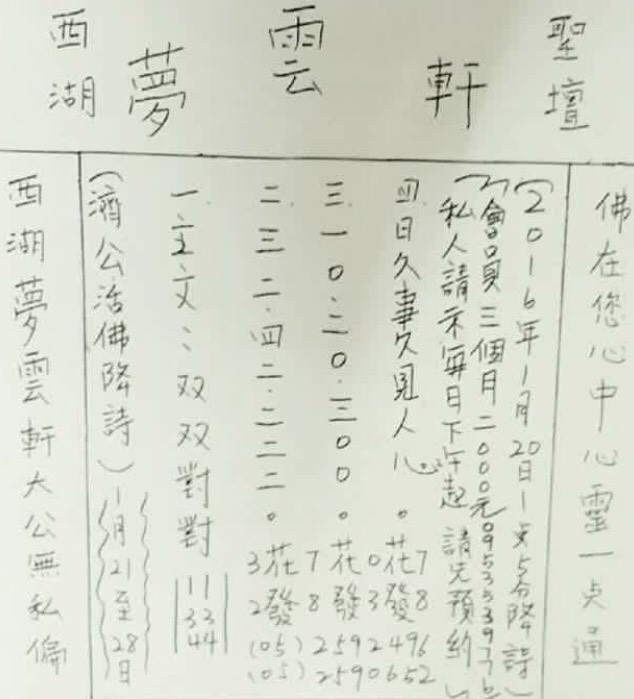 西湖 夢雲軒 聖壇
佛在您心中心靈一点通
(2016年1月20日1点5分降詩)
會員三個月二000元
私人請示每日下午起 請先預約
四.日久事久見人心。花7
三.一0.二0.三00。花0
二.三二.四二.二二二。花
一.主文:双双對對 11 33 44
(濟公活佛降詩) 1月21至28日
3花7花0花7
2發8發3發8
(05)2592496
(05)2590652
西湖夢雲軒大公無私偏